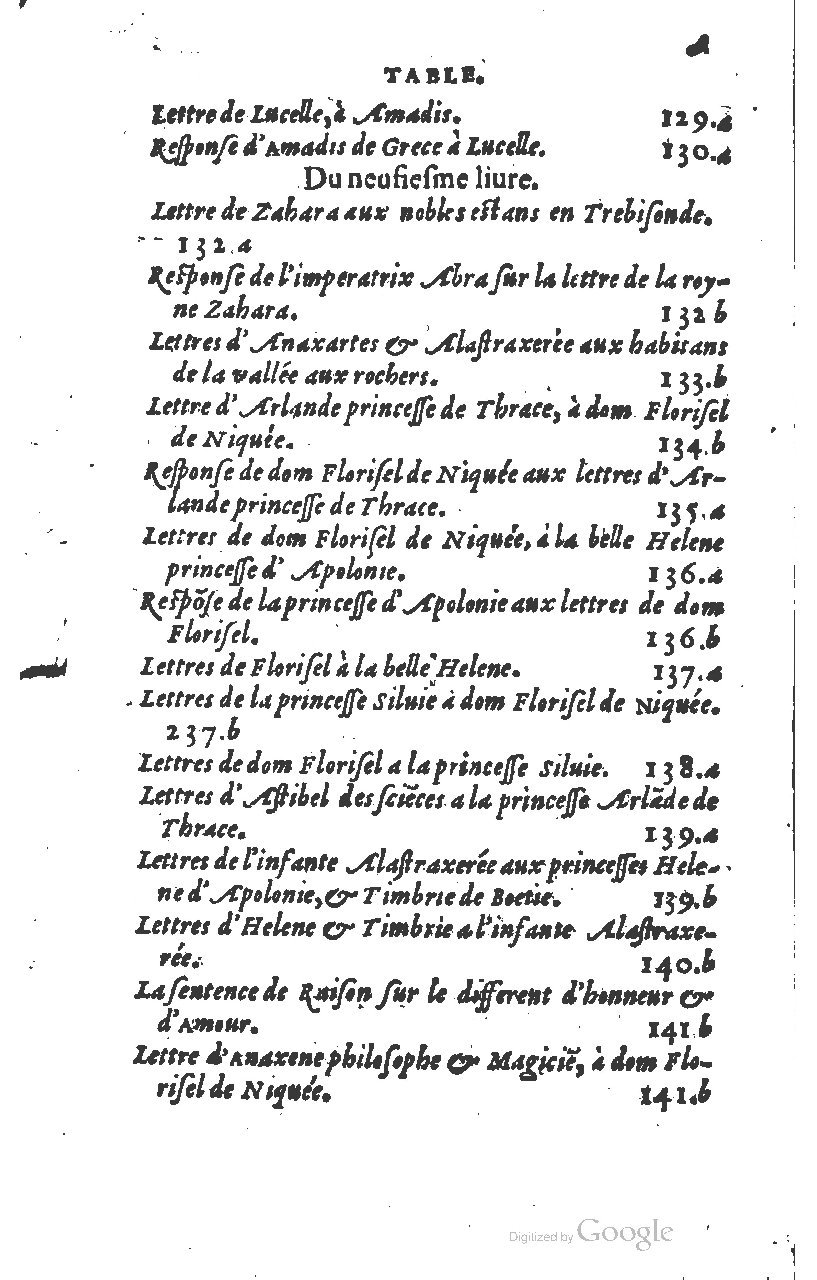 TABLE.
Lettre de Lucelle, à Amadis. 129.a
Responſe d'Amadis de Grece à Lucelle. 130.a
Du neufieſme liure.
Lettre de Zahara aux nobles eſtans en Trebiſonde.
132.a
Reſponſe de l'imperatrix Abra ſur la lettre de la roy-
ne Zahara. 132 b
Lettres d'Anaxartes & Alaſtraxerée aux habitans
de la vallée aux rochers. 133.b
Lettre d'Arlande princeſſe de Thrace, à dom Floriſel
de Niquée. 134.b
Reſponſe de dom Floriſel de Niquée aux lettres d'Ar-
lande princeſſe de Thrace. 135.a
Lettres de dom Floriſel de Niquée, à la belle Helene
princeſſe d'Apolonie. 136.a
Reſpõſe de la princeſſe d'Apolonie aux lettres de dom
Floriſel. 136.b
Lettres de Floriſel à la belle Helene. 137.a
Lettres de la princeſſe Siluie à dom Floriſel de Niquée.
237.b
Lettres de dom Floriſel a la princeſſe Siluie. 138.a
Lettres d'Aſtibel des ſciẽces a la princeſſe Arlãde de
Thrace. 139.a
Lettres de l'infante Alaſtraxerée aux princeſſes Hele-
ne d'Apolonie, & Timbrie de Boetie. 139.b
Lettres d'Helene & Timbrie a l'infante Alaſtraxe-
rée. 140.b
La ſentence de Raiſon ſur le different d'honneur &
d'Amour. 141.b
Lettre d'Anaxene philoſophe & Magiciẽ, à dom Flo-
riſel de Niquée. 141.b
Digitized by Google